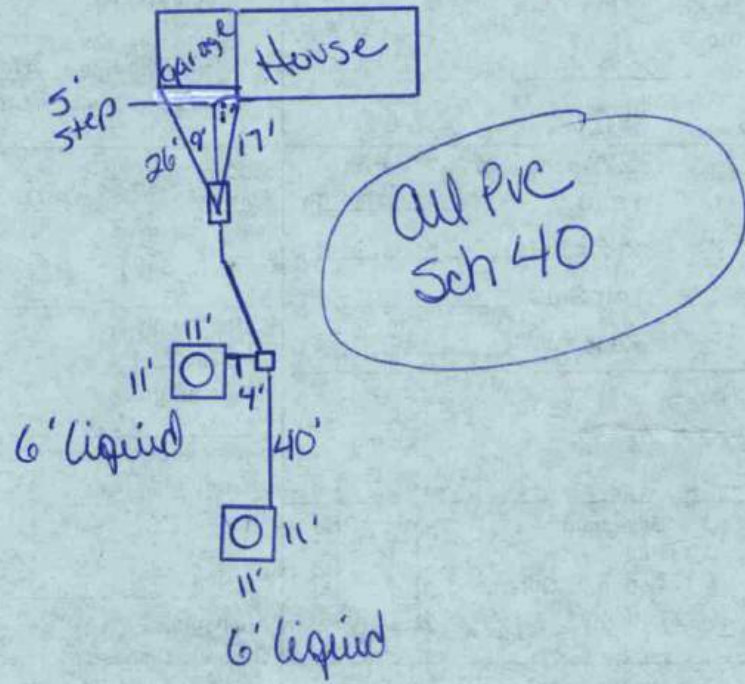 garage
House
5'
Step
26'
9'
17'
all PVC
Sch 40
11'
11'
4'
6' liquid
40'
11'
11'
6' liquid